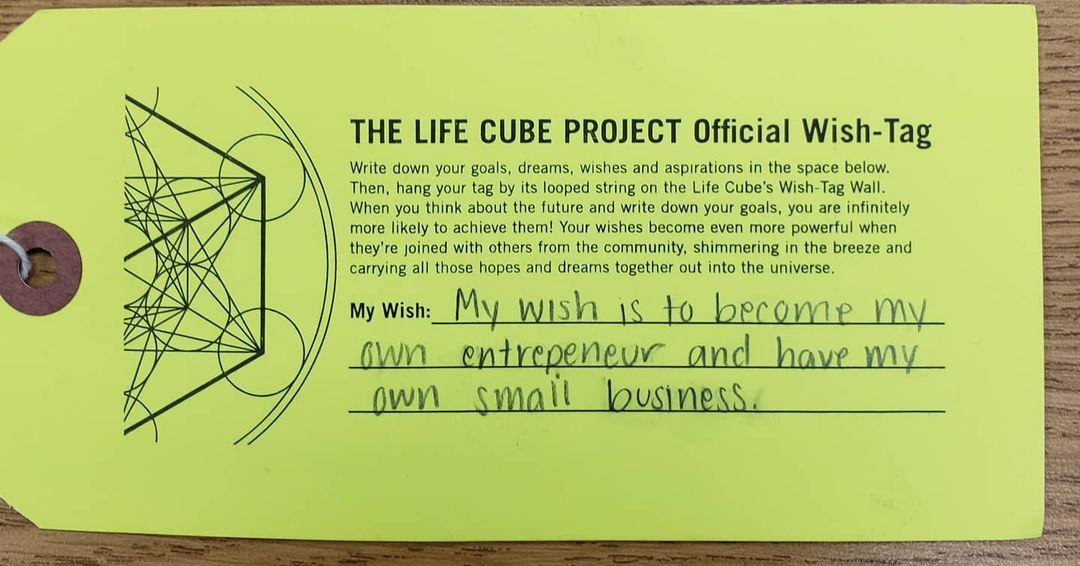 THE LIFE CUBE PROJECT Official Wish-Tag
Write down your goals, dreams, wishes and aspirations in the space below.
Then, hang your tag by its looped string on the Life Cube's Wish-Tag Wall.
When you think about the future and write down your goals, you are infinitely
more likely to achieve them! Your wishes become even more powerful when
they're joined with others from the community, shimmering in the breeze and
carrying all those hopes and dreams together out into the universe.
My Wish: My wish is to become my
own entrepeneur and have my
own small business.